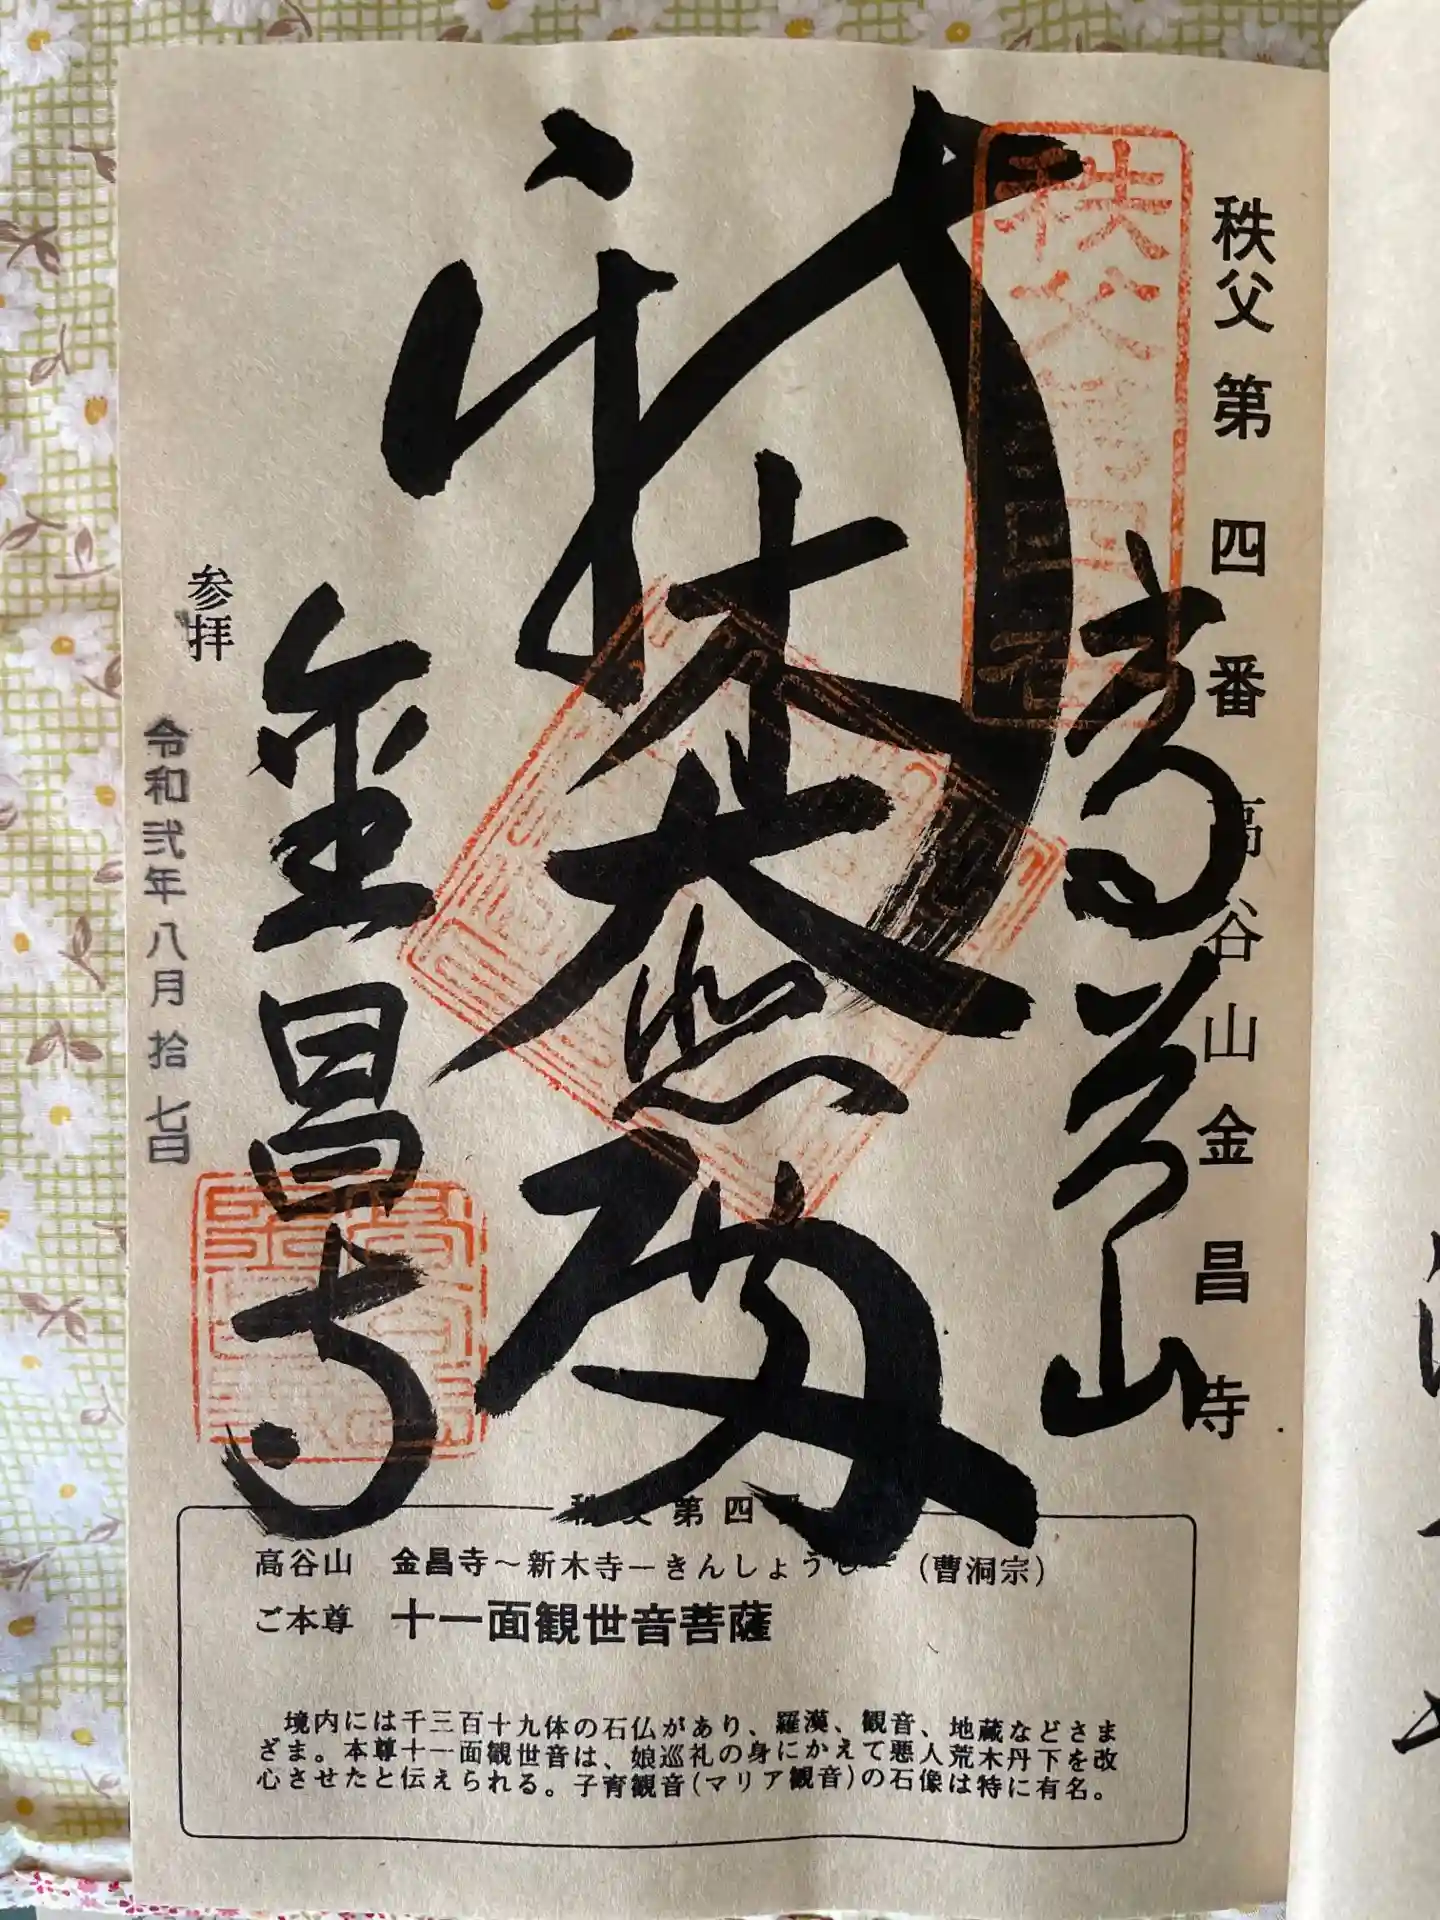 秩父第四番 高谷山金昌寺
秩父
高谷山
新木大悲殿
金昌寺
参拝
令和弐年八月拾七日
秩父第四番
高谷山 金昌寺～新木寺―きんしょうじ (曹洞宗)
ご本尊 十一面観世音菩薩
境内には千三百十九体の石仏があり、羅漢、観音、地蔵などさま
ざま。本尊十一面観世音は、娘巡礼の身にかえて悪人荒木丹下を改
心させたと伝えられる。子育観音(マリア観音)の石像は特に有名。